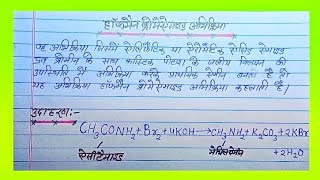 हॉफमैन ब्रोमेमाइड अभिक्रिया
यह अभिक्रिया जिसमें ऐलिफैटिक या ऐरोमैटिक ऐसिड ऐमाइड
द्रव ब्रोमीन के साथ कास्टिक पोटाश के जलीय विलयन की
उपस्थिति में अभिक्रिया करके प्राथमिक ऐमीन बनाता है तो
यह अभिक्रिया हॉफमैन ब्रोमेमाइड अभिक्रिया कहलाती है।
उदाहरण:-
CH₃CONH₂ + Br₂ + 4KOH → CH₃NH₂ + K₂CO₃ + 2KBr
ऐसीटैमाइड मेथिल ऐमीन + 2H₂O